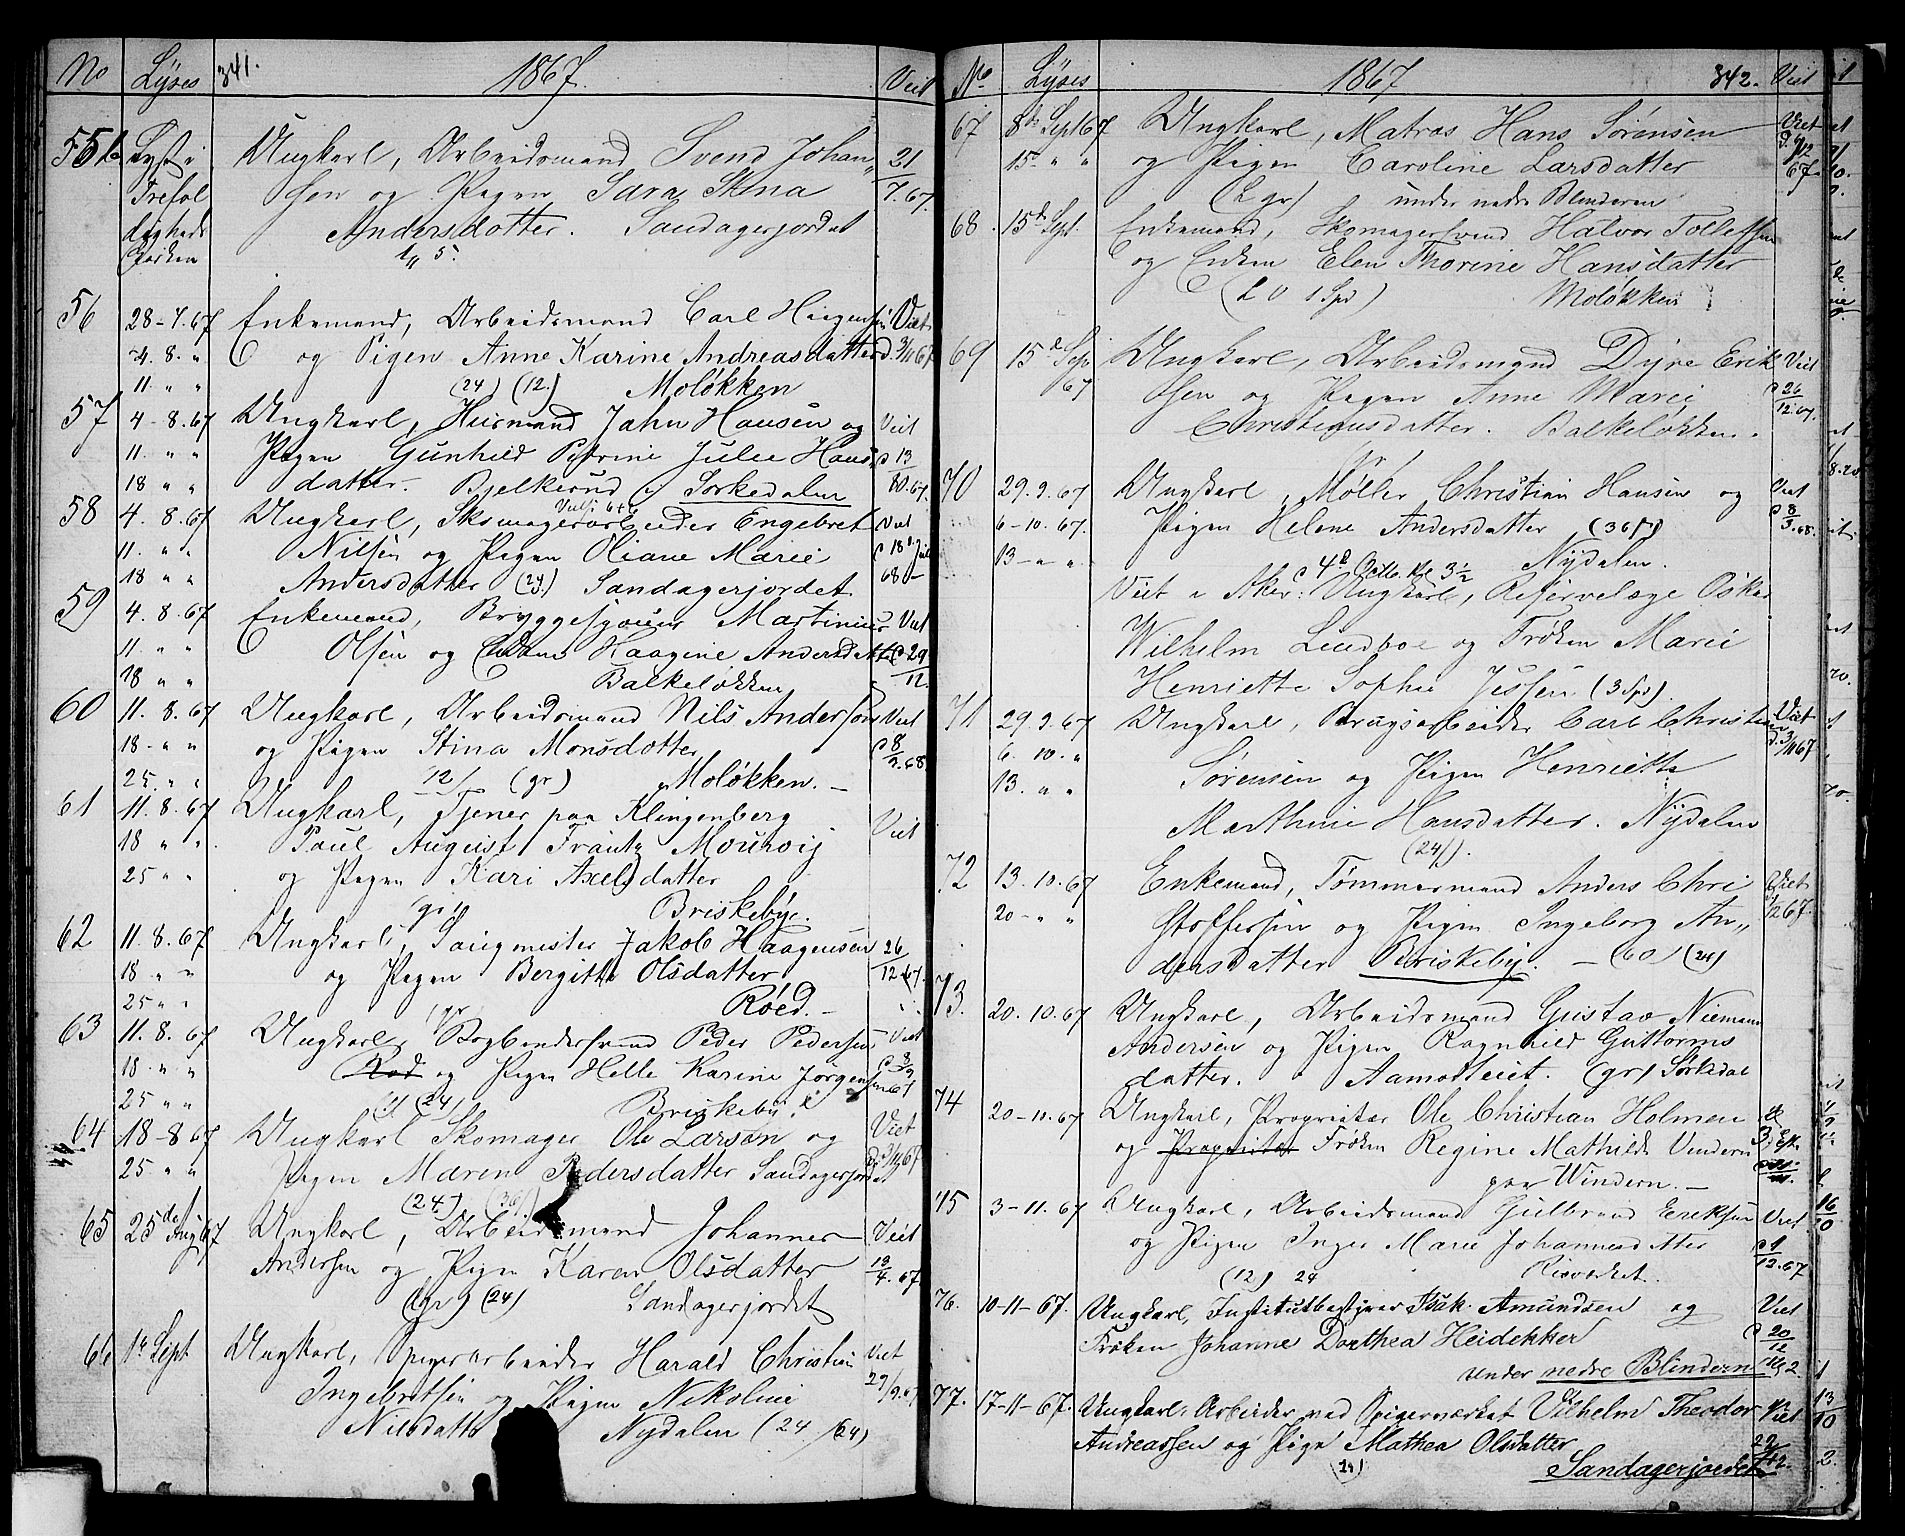 No Lyses 341. 1867. Viet
55 b Lyst i Ungkarl, Arbeidsmand Svend Johan„ 21
Trefol sen og Pigen Sara Stina 7.67.
digheds Andersdatter. Sandagerjordet
Kirken 1„ 5.
56 28-7.67 Enkemand, Arbeidsmand Carl Haagensen Viet
4. 8. „ og Pigen Anne Karine Andreasdatter d. 3/11 67
11. „ „ (24) (12.) Moløkken
57 4-8.67 Ungkarl, Husmand Jahn Hansen og Viet
11. „ „ Pigen Gunhild Petrine Julie Hans d 13
18 „ „ datter. Bjelkerud i Sørkedalen 10.67.
58 4. 8.67 Ungkarl, Skomagerarbeider Engebret Viet
11. „ „ Nilsen og Pigen Oliane Marie d 18d Juli
18 „ „ Andersdatter (24) Sandagerjordet 68-
59 4. 8.67 Enkemand, Bryggesjouer Martinius Viet
11. „ „ Olsen og Enken Haagine Andersdatter d 29
18 „ „ Balkeløkken 12.
60 11. 8.67 Ungkarl, Arbeidsmand Nils Anderson Viet
18- „ „ og Pigen Stina Monsdotter d 8
25. „ „ 12/ (gr) Moløkken. 9.68
61 11. 8.67 Ungkarl, Tjener paa Klingenberg
18 „ „ Paul August Frantz Mourvig Viet
25 „ „ og Pigen Kari Axelsdatter
gr Briskeby.
62 11. 8.67 Ungkarl, Saugmester Jakob Haagensen 26
18 „ „ og Pigen Bergitte Olsdatter 12.67.
25 „ „ Røed.
63 11. 8.67 Ungkarl, Bogbindersvend Peder Pedersen Viet
18. „ „ Rød og Pigen Helle Karine Jørgensen d 8/9
25 „ „ (24) Briskeby. 67
64 18-8.67 Ungkarl Skomager Ole Larsen og Viet
25. „ „ Pigen Maren Pedersdatter Sandagerjordet d 3/11 67
(24) (36)
65 25de Aug 67 Ungkarl, Arbeidsmand Johannes Viet
Andersen og Pigen Karen Olsdatter 13
(gr) (24) Sandagerjordet 4.67.
66 1te Sept Ungkarl, Spigerarbeider Harald Christian Viet
Ingebretsen og Pigen Nikoline 29/9.67
Nilsdatter Nydalen (24 (24)
No Lyses 1867 342. Viet
67 8de Sept 67 Ungkarl, Matros Hans Sørensen Viet
15 „ „ og Pigen Caroline Larsdatter d. 9/12
(2 gr) under nedre Blinderen 67.
68. 15de Sept. Enkemand, Skomagersvend Halvor Tollefsen
og Enken Elen Thorine Hansdatter
(20 1 Spd) Moløkken
69 15d Sep Ungkarl, Arbeidsmand Dyre Erik Viet
67 sen og Pigen Anne Marie d 26
Christiansdatter. Balkeløkken. 12.67.
70 29.9.67 Ungkarl, Møller Christian Hansen og Viet
6-10.67. Pigen Helene Andersdatter (36ſ) d 8
13- „ „ Nydalen. 3.68.
d 4d Octb. Kl 3½
Viet i Aker: Ungkarl, Reservelæge Oskar
Wilhelm Lindboe og Frøken Marie
Henriette Sophie Jessen (3 Spd).
71 29.9.67 Ungkarl, Brugsarbeider Carl Christian Viet
6. 10. „ Sørensen og Pigen Henriette d. 3/11 67
13. „ „ Marthine Hansdatter. Nydalen
(24ſ).
72 13. 10.67 Enkemand, Tømmermand Anders Chri Viet
20- „ „ stoffersen og Pigen Ingeborg An„ 12 67.
dersdatter Briskeby. - (60) (24)
73. 20.10.67 Ungkarl, Arbeidsmand Gustav Niemann
Andersen og Pigen Ragnhild Guttorms
datter. Aamotteiet. (gr) Sørkedal
74 20-10.67 Ungkarl, Proprietær Ole Christian Holmen
og Proprietær Frøken Regine Mathilde Vindern
paa Windern. -
75 3-11.67 Ungkarl, Arbeidsmand Gulbrand Eriksen Viet
og Pigen Inger Marie Johannesdatter d 1
(12) 24 Risværket. 12.67
76. 10-11-67. Ungkarl, Institutbestyrer Isak Amundsen og Viet
Frøken Johanne Dorthea Heidekker d 20
under nedre Blindern 12 Kl 2
77. 17-11-67. Ungkarl, Arbeider ved Spigerværket Vilhelm Theodor Viet
Andreassen og Pige Mathea Olsdatter 22
24) Sandagerjordet 12.